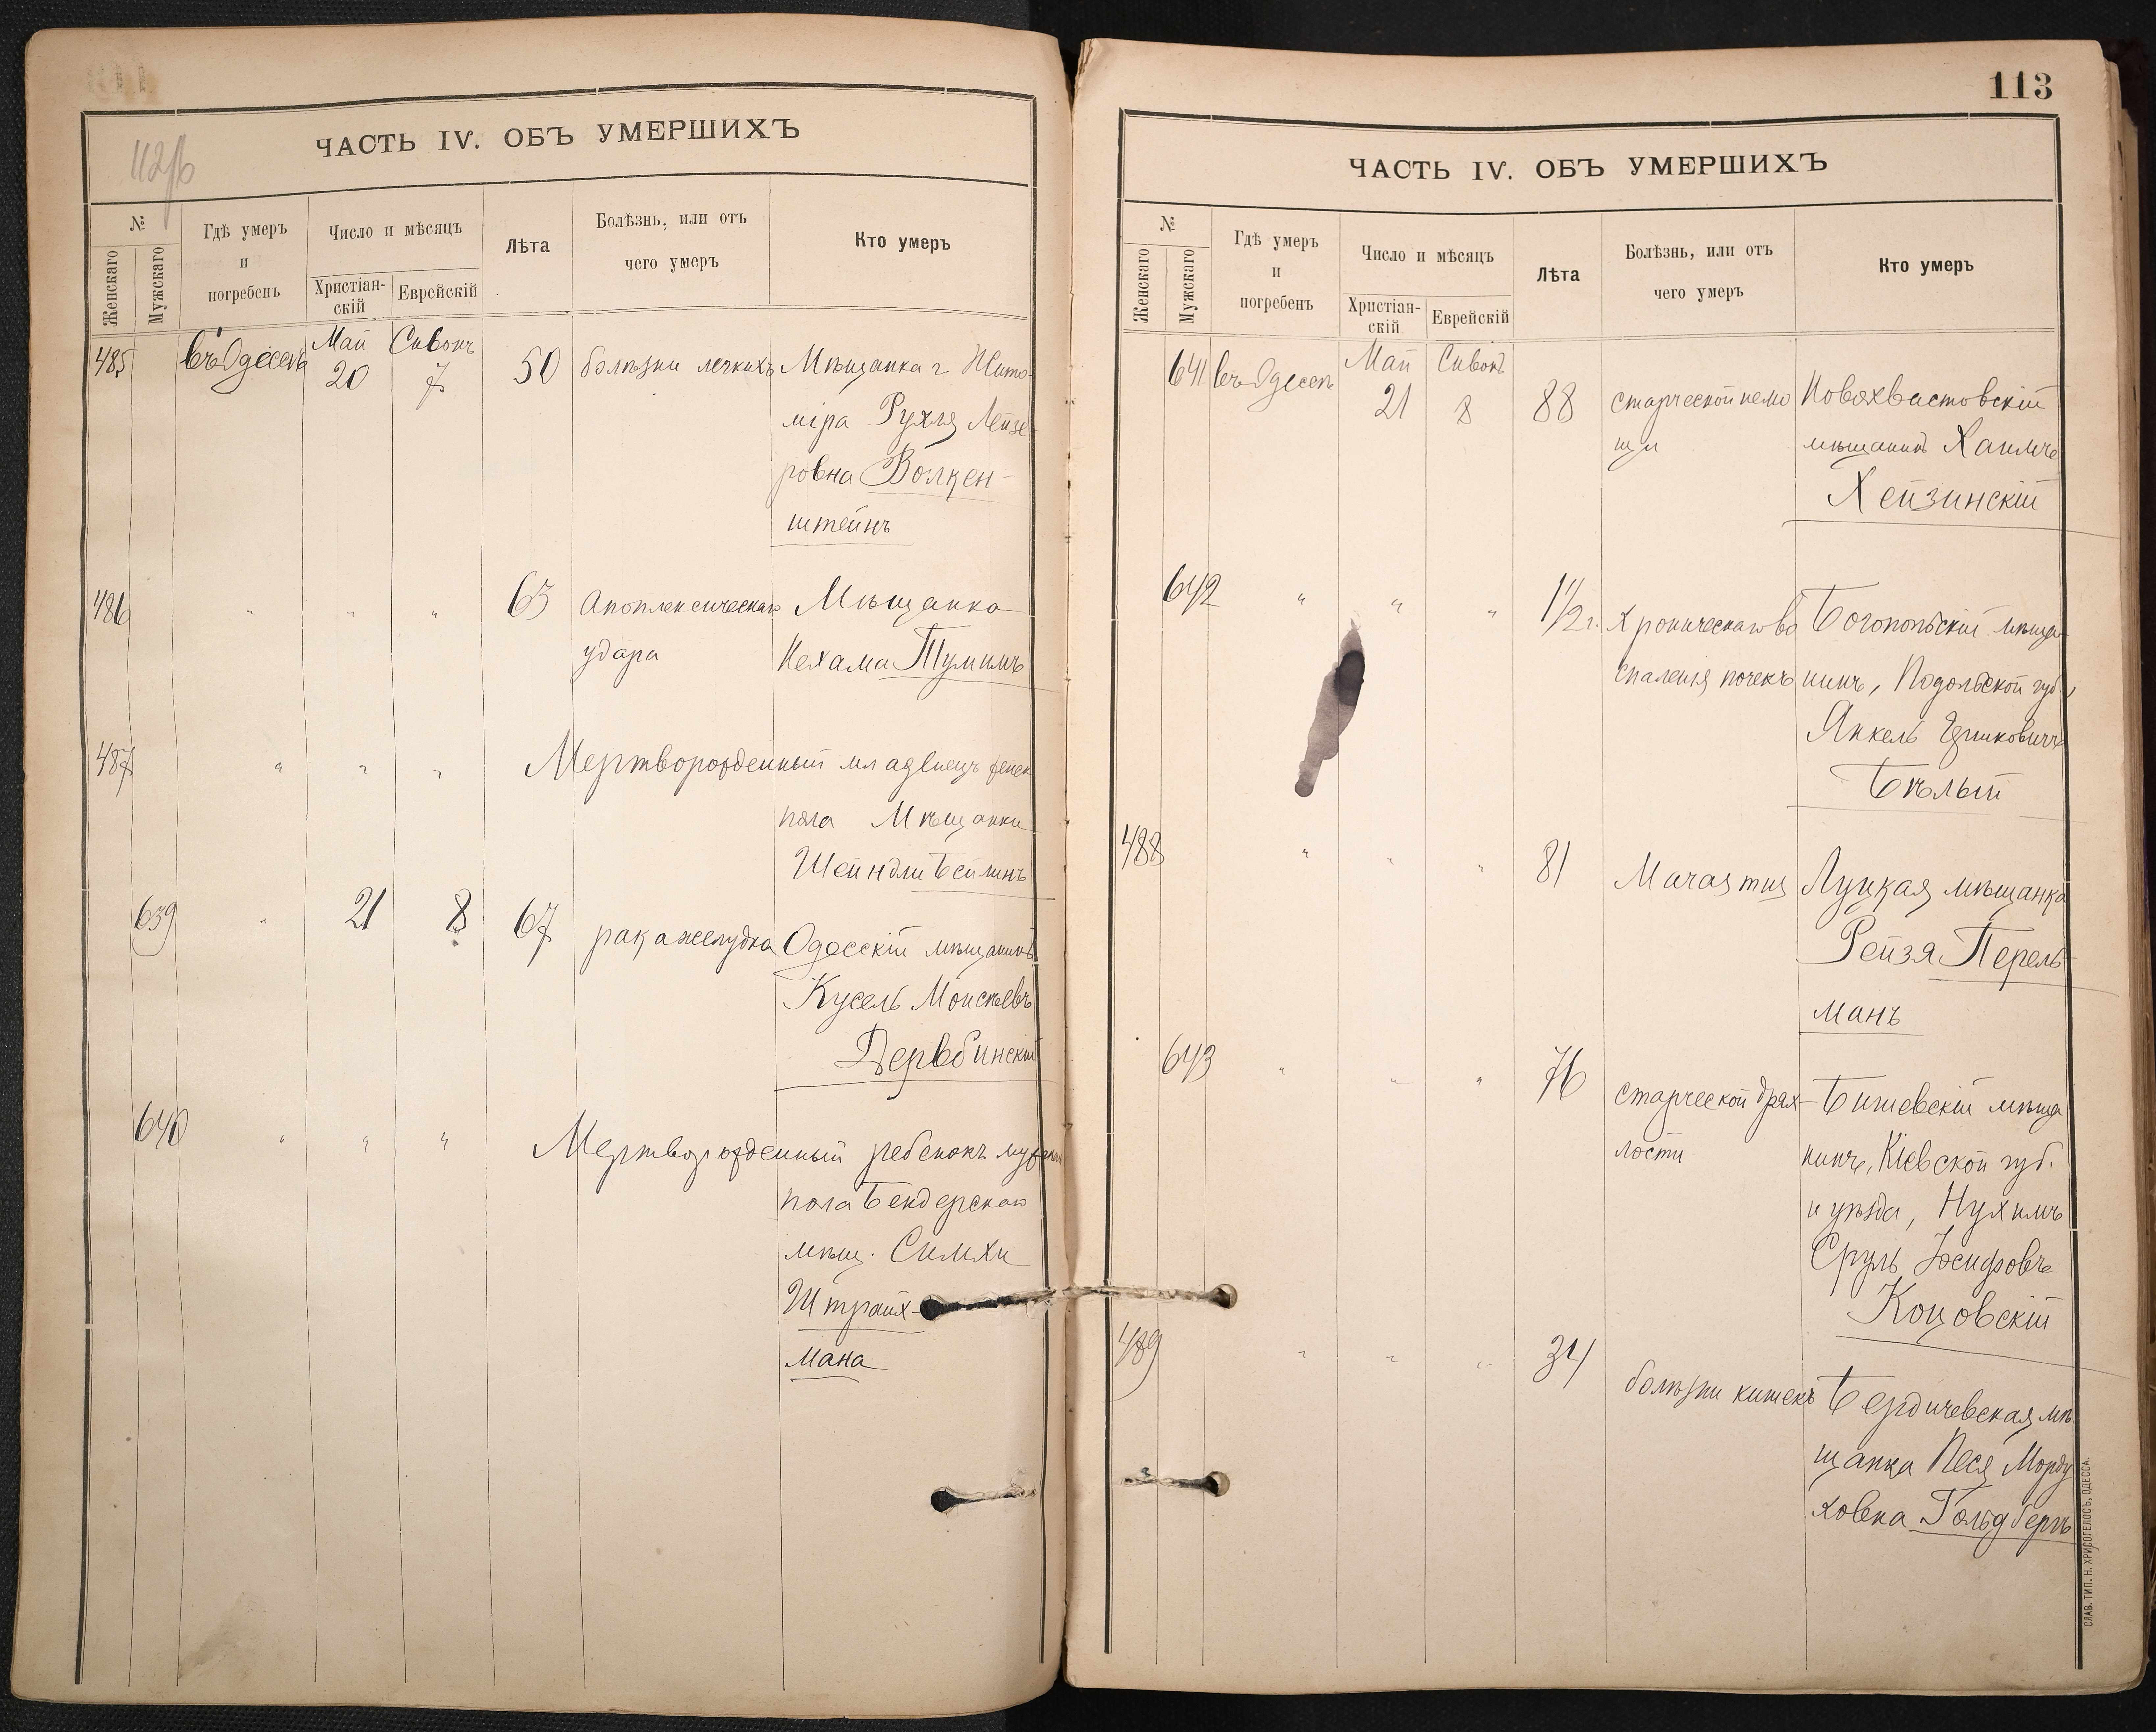 112об
ЧАСТЬ IV. ОБЪ УМЕРШИХЪ
№
Женскаго
Мужскаго
Гдѣ умеръ
и
погребенъ
Число и мѣсяцъ
Христіан-
скій
Еврейскій
Лѣта
Болѣзнь, или отъ
чего умеръ
Кто умеръ
485 въ Одессѣ Май 20 Сивонъ 7 50 болѣзни легкихъ Мѣщанка г. Жито-
міра Рухля Лейзе-
ровна Волкен-
штейнъ
486 " " " 63 Апоплексическаго Мѣщанка
удара Нехама Тумимъ
487 " " " Мертворожденный младенецъ женск
пола Мѣщанки
Шейндли Бейлинъ
639 " 21 8 67 рака желудка Одесскій мѣщанинъ
Кусель Моисѣевъ
Дербинскій
640 " " " Мертворожденный ребенокъ мужск
пола Бендерскаго
мѣщ. Симхи
Штрайх-
мана
113
ЧАСТЬ IV. ОБЪ УМЕРШИХЪ
№
Женскаго
Мужскаго
Гдѣ умеръ
и
погребенъ
Число и мѣсяцъ
Христіан-
скій
Еврейскій
Лѣта
Болѣзнь, или отъ
чего умеръ
Кто умеръ
641 въ Одессѣ Май 21 Сивонъ 8 88 старческой немо Новохвастовскій
щи мѣщанинъ Хаимъ
Хейзинскій
642 " " " 1 1/2 г. Хроническаго во Богопольскій мѣща-
спаленія почекъ нинъ, Подольской губ.,
Янкель Ицковичъ
Бѣлый
488 " " " 81 Маразма Луцкая мѣщанка
Рейзя Перель-
манъ
643 " " " 76 старческой дрях- Бишевскій мѣща
лости нинъ, Кіевской губ.
и уѣзда, Нухимъ
Сруль Іосифовъ
Коцовскій
489 " " " 34 болѣзни кишекъ Бердичевская мѣ
щанка Песя Морду
ховна Гольдбергъ
СЛАВ. ТИП. Н. ХРИСОГЕЛОСЪ, ОДЕССА.